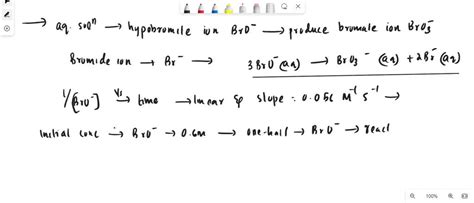 → aq. solⁿ → hypobromile ion BrO⁻ → produce bromate ion BrO₃⁻
Bromide ion → Br⁻ → 3BrO⁻(aq) → BrO₃⁻(aq) + 2Br⁻(aq)
1/[BrO⁻] vs → time → linear Sp slope : 0.056 M⁻¹ s⁻¹ →
Initial conc → BrO⁻ → 0.6m → one-half → BrO⁻ → react
100%